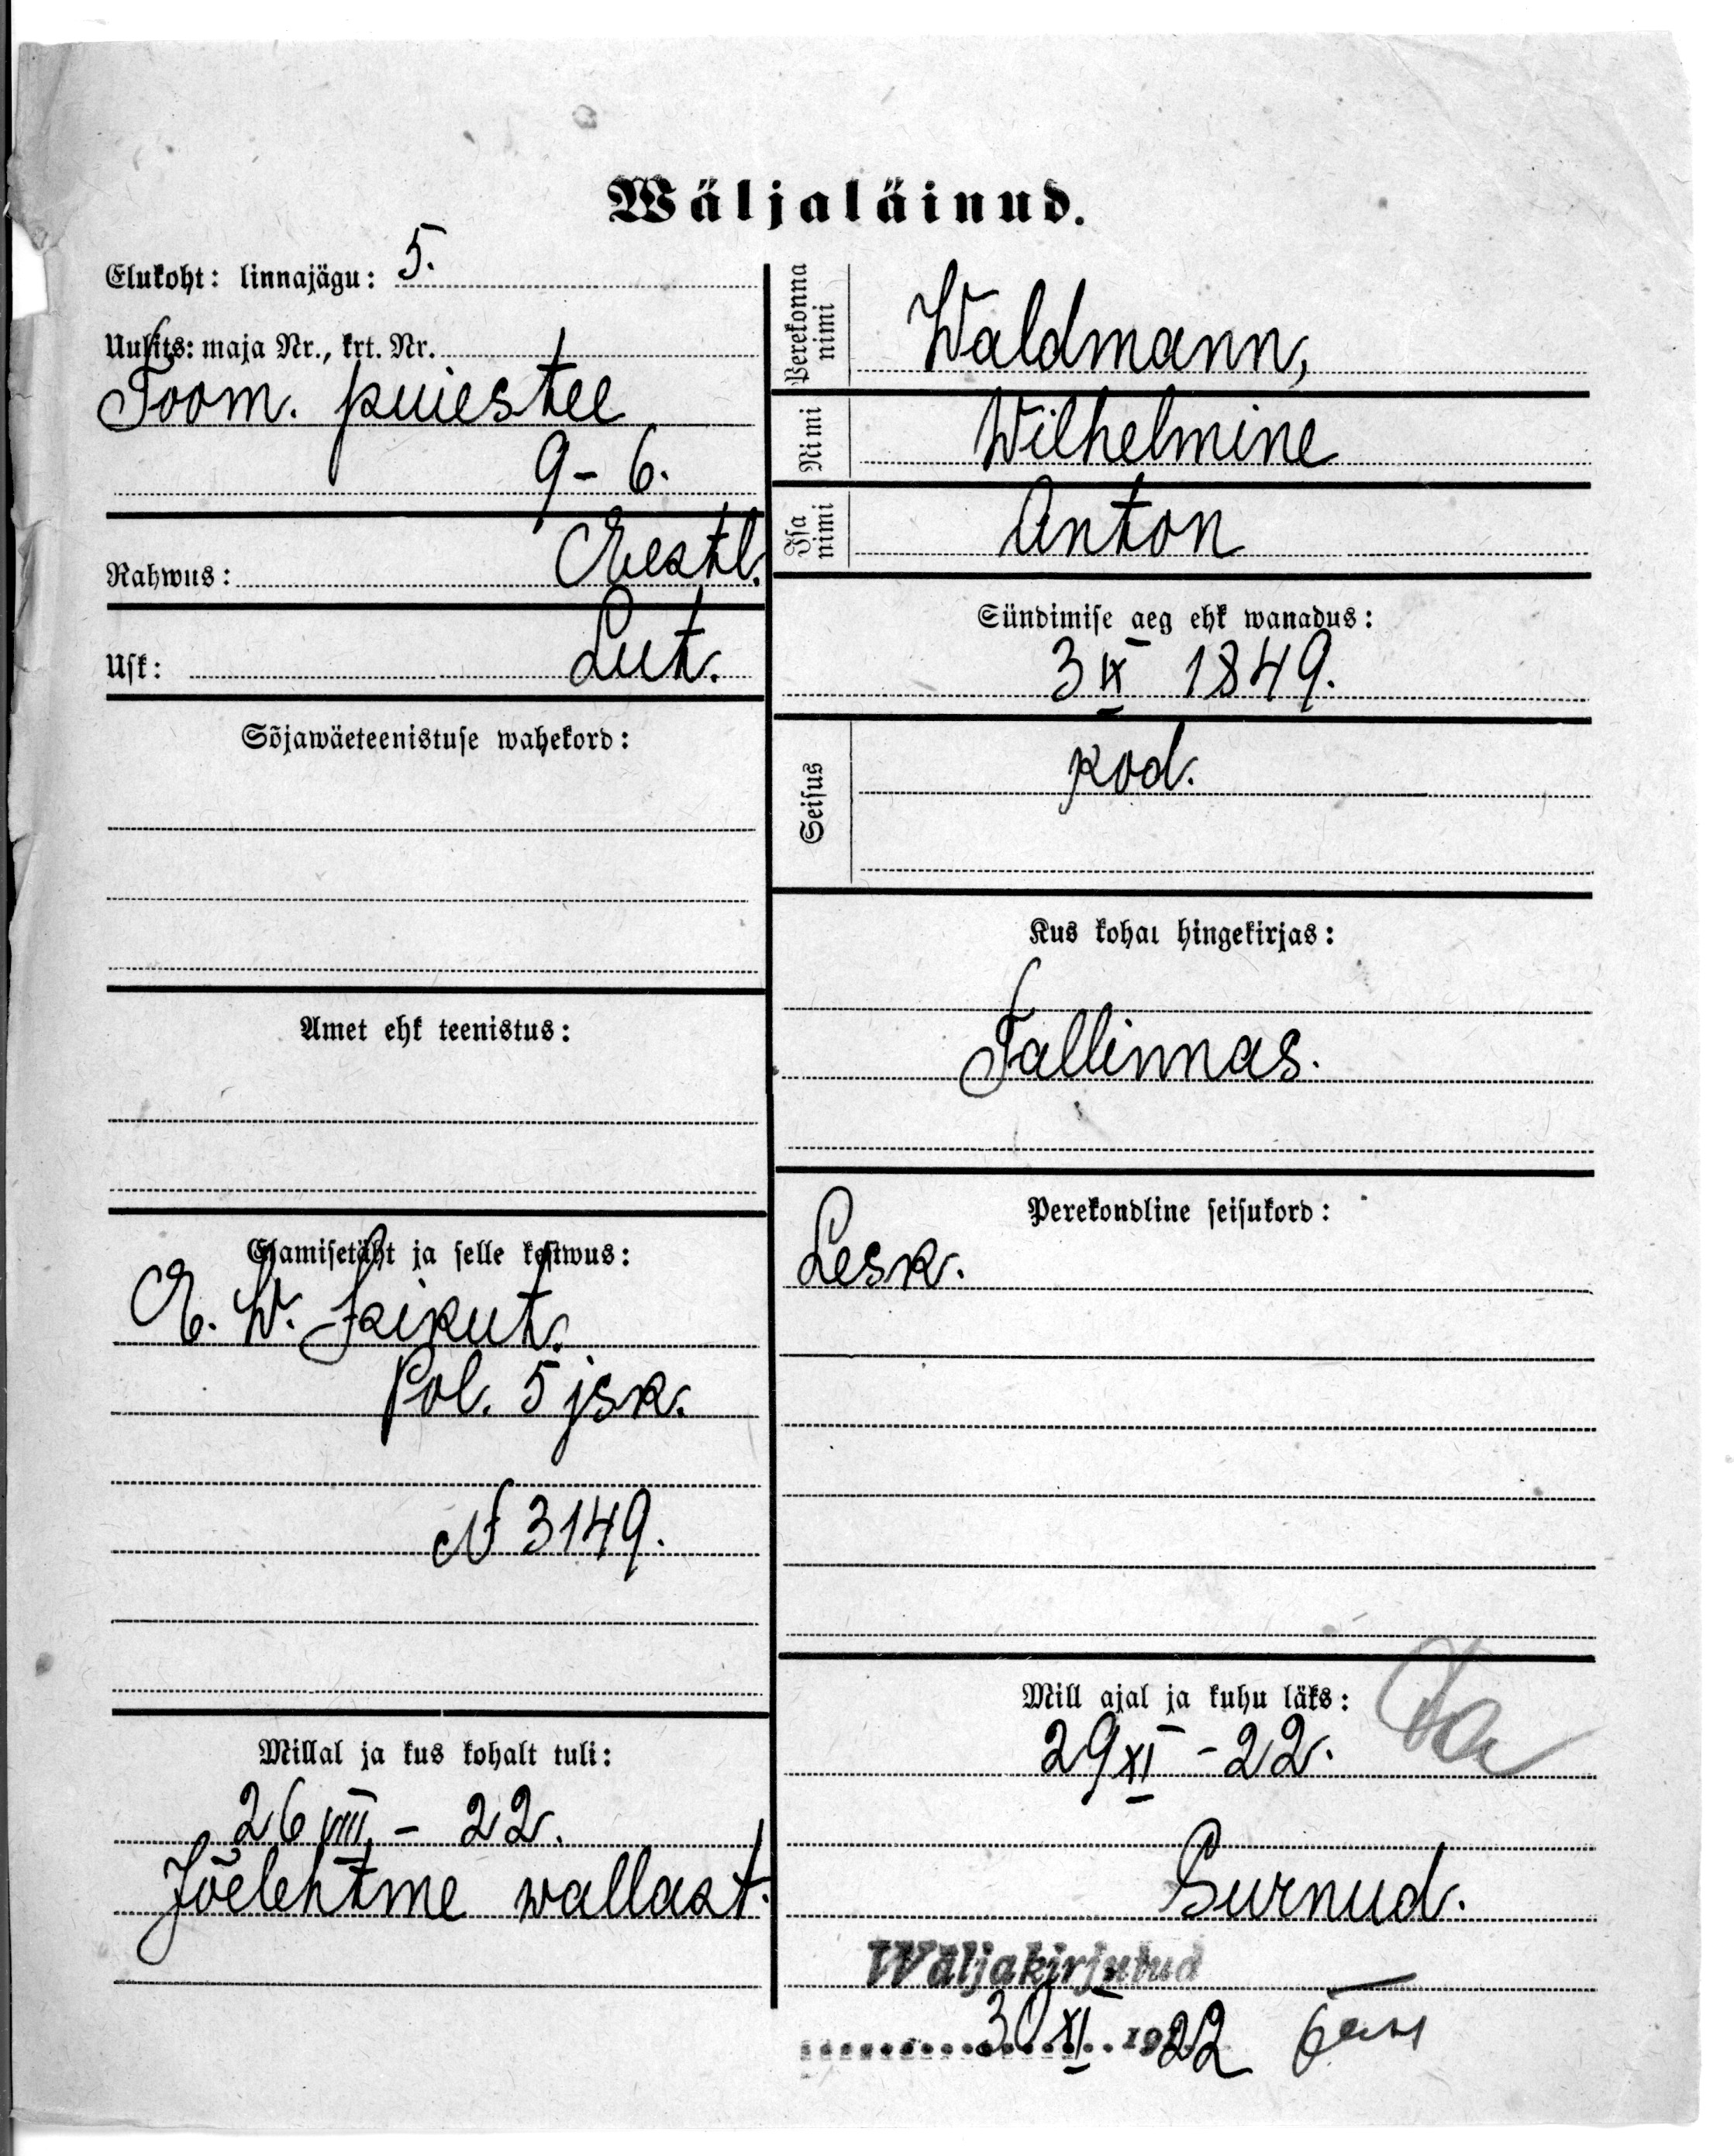 Wäljaläinud.
Elukoht: linnajägu: 5.
Uulits: maja Nr., krt. Nr.
Toom. puiestee
9-6.
Rahwus: Eestl.
Usk: Lut.
Sõjawäeteenistuse wahekord:
Amet ehk teenistus:
Elamisetäht ja selle kestwus:
E. W. Isikut.
Pol. 5 jsk.
N 3149.
Millal ja kus kohalt tuli:
26 VIII - 22.
Jõelehtme wallast.
Perekonna nimi
Waldmann,
Nimi
Wilhelmine
Isa nimi
Anton
Sündimise aeg ehk wanadus:
3 IX 1849.
Seisus
kod.
Kus kohal hingekirjas:
Tallinnas.
Perekondline seisukord:
Lesk.
Mill ajal ja kuhu läks:
29 XI - 22.
Surnud.
Wäljakirjutud
30 XI 1922